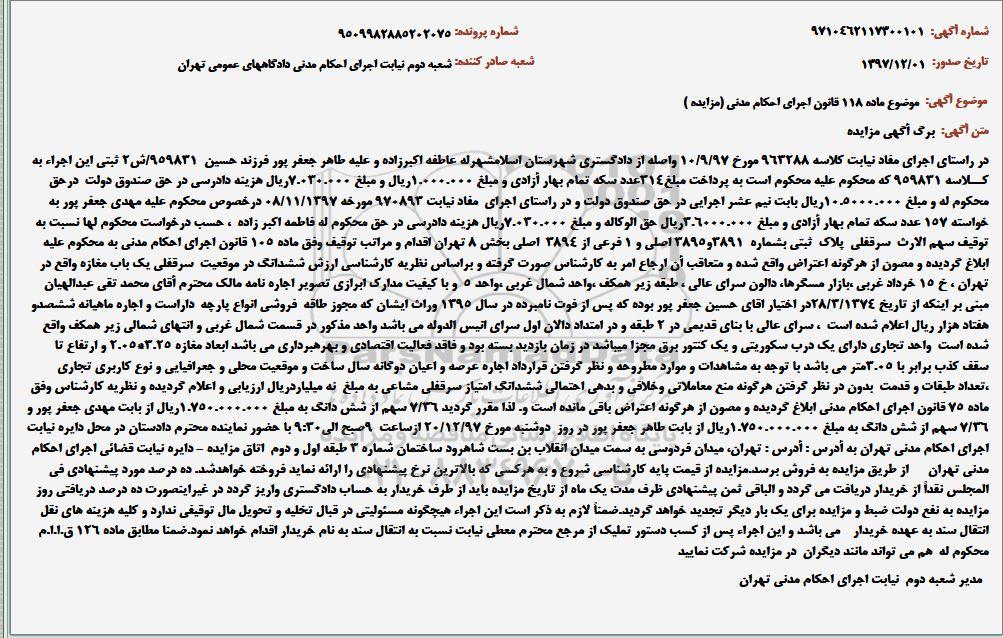 شماره آگهی: ۹۷۱۰۴۶۲۱۱۷۳۰۰۱۰۱ شماره پرونده: ۹۵۰۹۹۸۲۸۸۵۲۰۲۰۷۵
تاریخ صدور: ۱۳۹۷/۱۲/۰۱ شعبه صادر کننده: شعبه دوم نیابت اجرای احکام مدنی دادگاههای عمومی تهران
موضوع آگهی: موضوع ماده ۱۱۸ قانون اجرای احکام مدنی (مزایده )
متن آگهی: برگ آگهی مزایده
در راستای اجرای مفاد نیابت کلاسه ۹۶۳۲۸۸ مورخ ۱۰/۹/۹۷ واصله از دادگستری شهرستان اسلامشهرله عاطفه اکبرزاده و علیه طاهر جعفر پور فرزند حسین ۹۵۹۸۳۱/ش۲ ثبتی این اجراء به
کــلاسه ۹۵۹۸۳۱ که محکوم علیه محکوم است به پرداخت مبلغ۳۱٤عدد سکه تمام بهار آزادی و مبلغ ۱.۰۰۰.۰۰۰ریال و مبلغ ۷.۰۳۰.۰۰۰ریال هزینه دادرسی در حق صندوق دولت درحق
محکوم له و مبلغ ۱۰.۵۰۰۰.۰۰۰ریال بابت نیم عشر اجرایی در حق صندوق دولت و در راستای اجرای مفاد نیابت ۹۷۰۸۹۳ مورخه ۰۸/۱۱/۱۳۹۷ درخصوص محکوم علیه مهدی جعفر پور به
خواسته ۱۵۷ عدد سکه تمام بهار آزادی و مبلغ ۳.۶۰۰۰.۰۰۰ریال حق الوکاله و مبلغ ۷.۰۳۰.۰۰۰ریال هزینه دادرسی در حق محکوم له فاطمه اکبر زاده ، حسب درخواست محکوم لها نسبت به
توقیف سهم الارث سرقفلی پلاک ثبتی بشماره ۳۸۹۱و۳۸۹۵ اصلی و ۱ فرعی از ۳۸۹٤ اصلی بخش ۸ تهران اقدام و مراتب توقیف وفق ماده ۱۰۵ قانون اجرای احکام مدنی به محکوم علیه
ابلاغ گردیده و مصون از هرگونه اعتراض واقع شده و متعاقب آن ارجاع امر به کارشناس صورت گرفته و براساس نظریه کارشناسی ارزش ششدانگ در موقعیت سرقفلی یک باب مغازه واقع در
تهران ، خ ۱۵ خرداد غربی ،بازار مسگرها، دالون سرای عالی ، طبقه زیر همکف ،واحد شمال غربی ،واحد ۵ و با کیفیت مدارک ابرازی تصویر اجاره نامه مالک محترم آقای محمد تقی عبدالهیان
مبنی بر اینکه از تاریخ ۲۸/۳/۱۳۷٤در اختیار اقای حسین جعفر پور بوده که پس از فوت نامبرده در سال ۱۳۹۵ وراث ایشان که مجوز طاقه فروشی انواع پارچه داراست و اجاره ماهیانه ششصدو
هفتاد هزار ریال اعلام شده است ، سرای عالی با بنای قدیمی در ۲ طبقه و در امتداد دالان اول سرای انیس الدوله می باشد واحد مذکور در قسمت شمال غربی و انتهای شمالی زیر همکف واقع
شده است واحد تجاری دارای یک درب سکوریتی و یک کنتور برق مجزا میباشد در زمان بازدید بسته بود و فاقد فعالیت اقتصادی و بهرهبرداری می باشد ابعاد مغازه ۳.۲۵*۲.۰۵ و ارتفاع تا
سقف کذب برابر با ۳.۰۵متر می باشد با توجه به مشاهدات و موارد مطروحه و نظر گرفتن قرارداد اجاره عرصه و اعیان دوگانه سال ساخت و موقعیت محلی و جعرافیایی و نوع کاربری تجاری
،تعداد طبقات و قدمت بدون در نظر گرفتن هرگونه منع معاملاتی وخلافی و بدهی احتمالی ششدانگ امتیاز سرقفلی مشاعی به مبلغ نه میلیاردریال ارزیابی و اعلام گردیده و نظریه کارشناس وفق
ماده ۷۵ قانون اجرای احکام مدنی ابلاغ گردیده و مصون از هرگونه اعتراض باقی مانده است و. لذا مقرر گردید ۷/۳۶ سهم از شش دانگ به مبلغ ۱.۷۵۰.۰۰۰.۰۰۰ریال از بابت مهدی جعفر پور و
۷/۳۶ سهم از شش دانگ به مبلغ ۱.۷۵۰.۰۰۰.۰۰۰ریال از بابت طاهر جعفر پور در روز دوشنبه مورخ ۲۰/۱۲/۹۷ ازساعت ۹صبح الی۹:۳۰ با حضور نماینده محترم دادستان در محل دایره نیابت
اجرای احکام مدنی تهران به آدرس : آدرس : تهران، میدان فردوسی به سمت میدان انقلاب بن بست شاهرود ساختمان شماره ۳ طبقه اول و دوم اتاق مزایده – دایره نیابت قضائی اجرای احکام
مدنی تهران از طریق مزایده به فروش برسد.مزایده از قیمت پایه کارشناسی شروع و به هرکسی که بالاترین نرخ پیشنهادی را ارائه نماید فروخته خواهدشد. ده درصد مورد پیشنهادی فی
المجلس نقداً از خریدار دریافت می گردد و الباقی ثمن پیشنهادی ظرف مدت یک ماه از تاریخ مزایده باید از طرف خریدار به حساب دادگستری واریز گردد در غیراینصورت ده درصد دریافتی روز
مزایده به نفع دولت ضبط و مزایده برای یک بار دیگر تجدید خواهد گردید.ضمناً لازم به ذکر است این اجراء هیچگونه مسئولیتی در قبال تخلیه و تحویل مال توقیفی ندارد و کلیه هزینه های نقل
انتقال سند به عهده خریدار می باشد و این اجراء پس از کسب دستور تملیک از مرجع محترم معطی نیابت نسبت به انتقال سند به نام خریدار اقدام خواهد نمود.ضمنا مطابق ماده ۱۲۶ ق.ا.ا.م
محکوم له هم می تواند مانند دیگران در مزایده شرکت نمایید
مدیر شعبه دوم نیابت اجرای احکام مدنی تهران